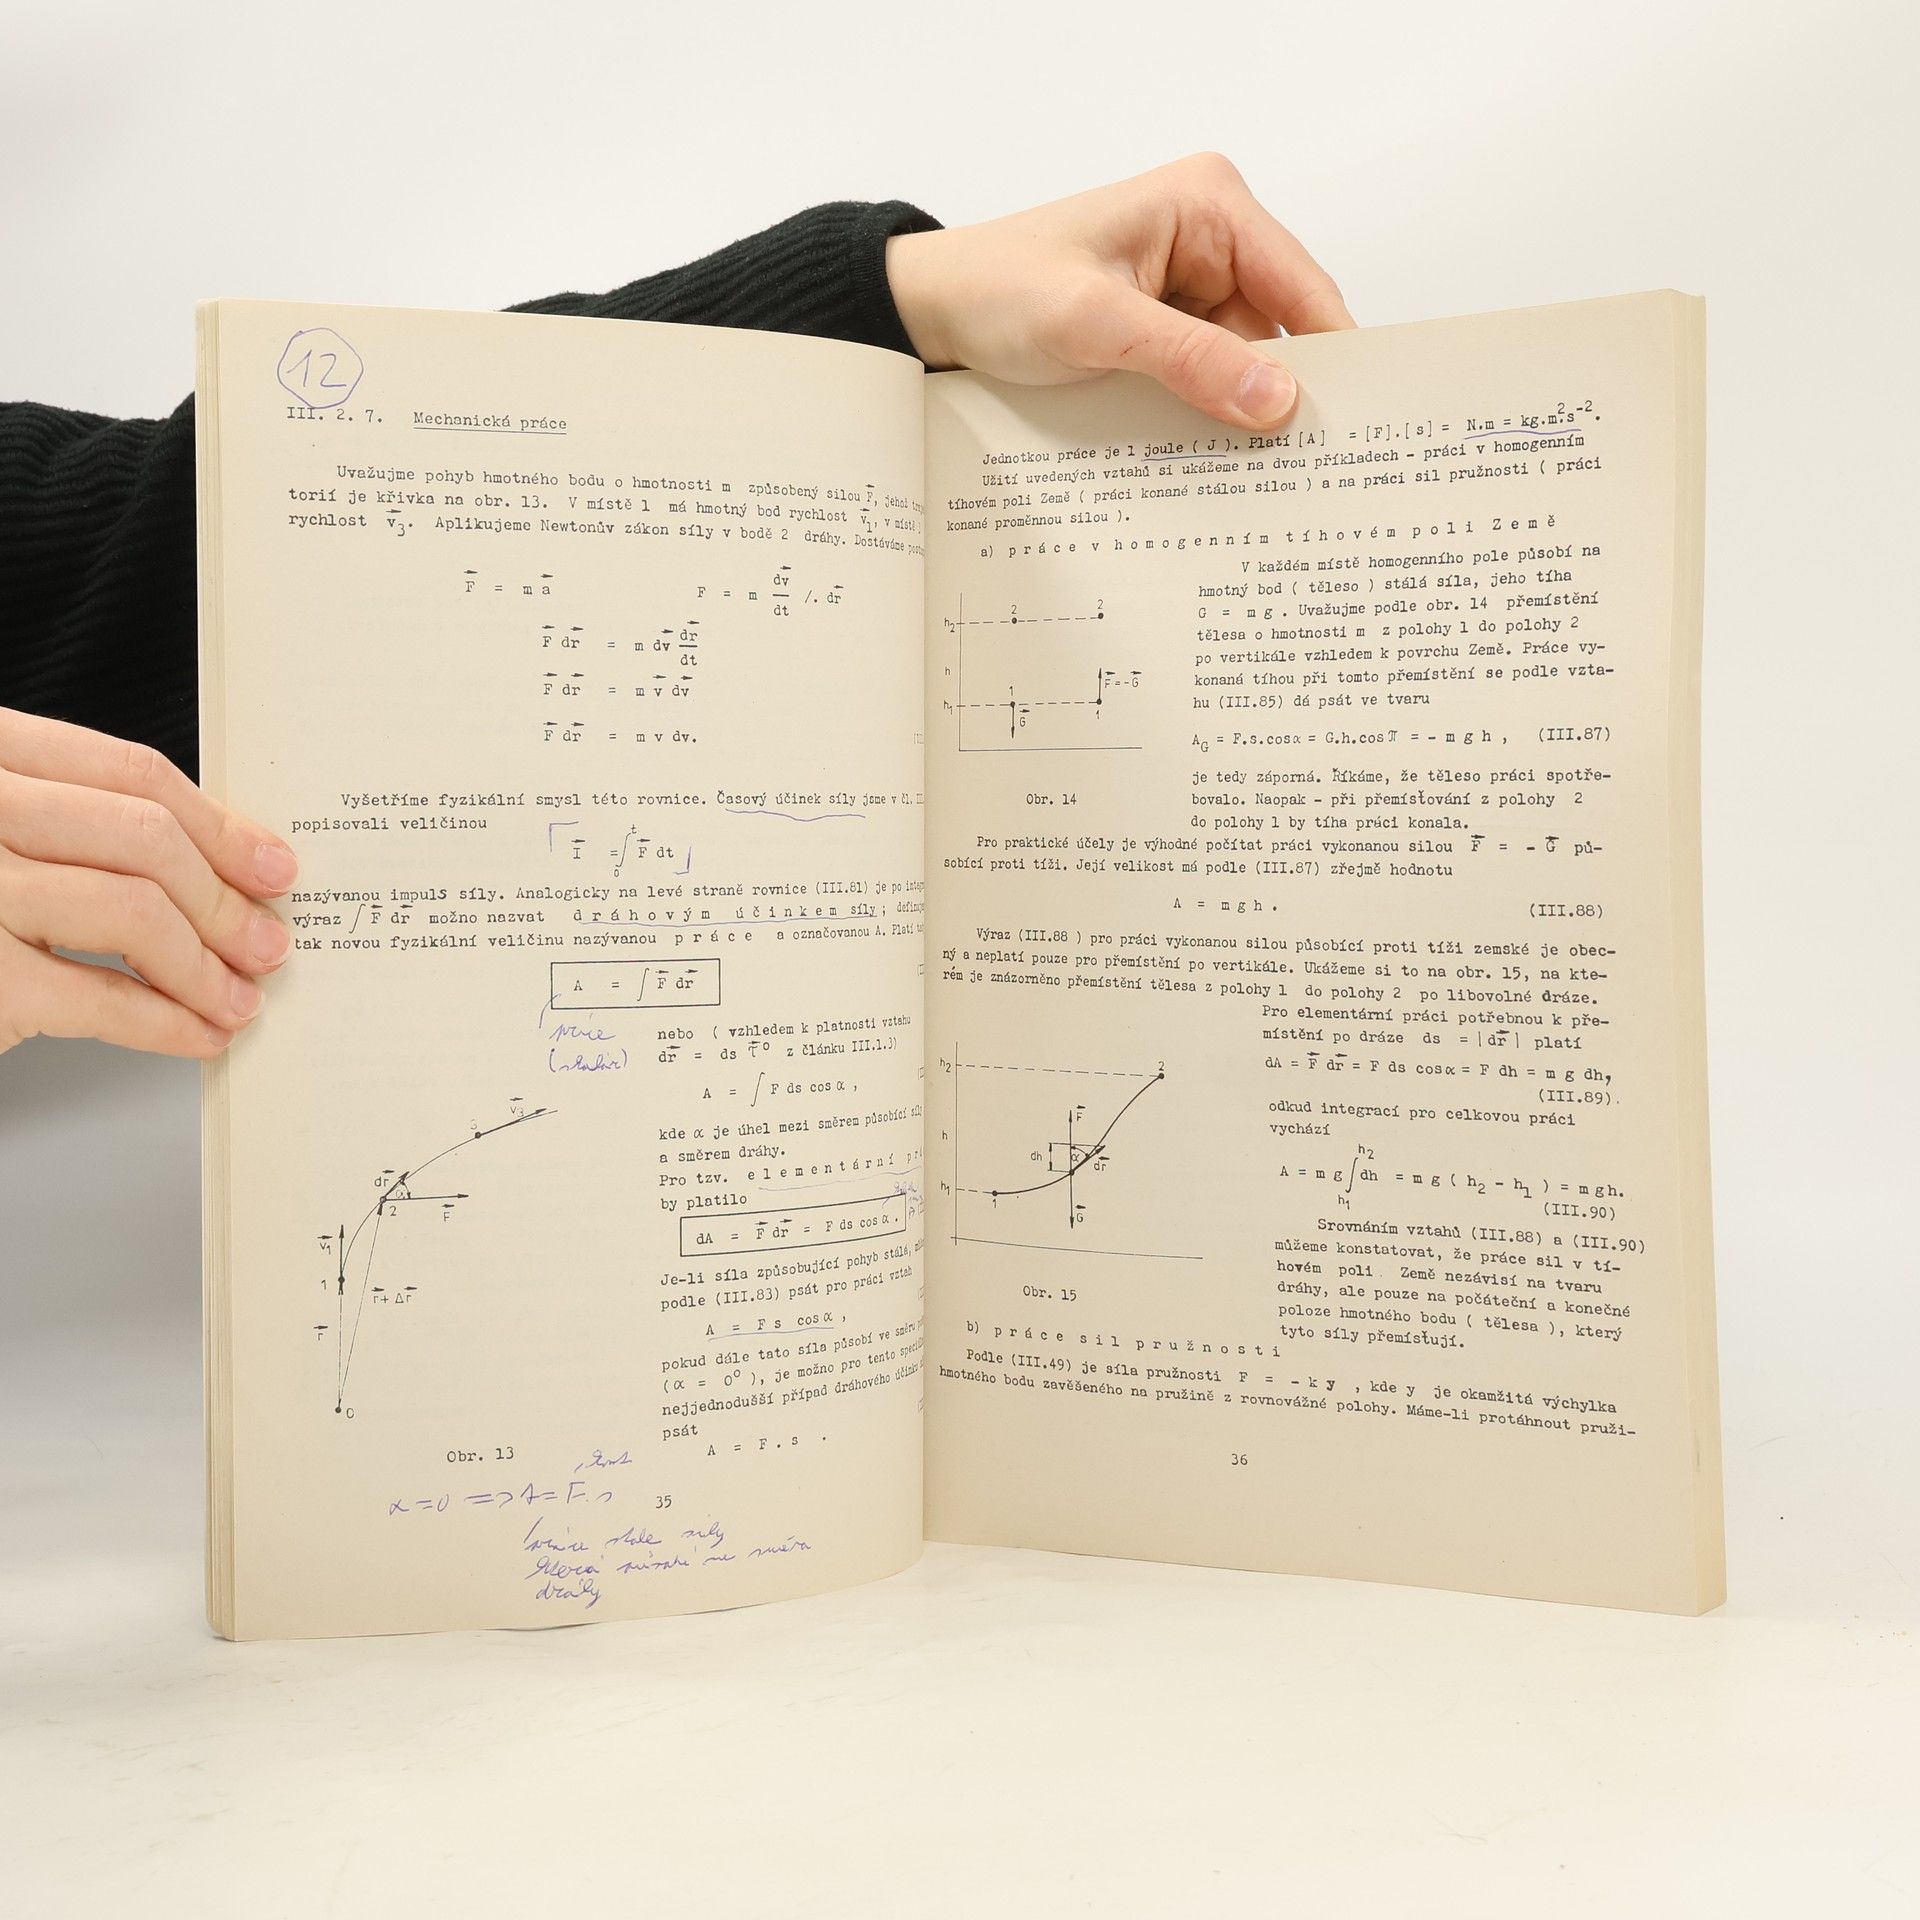 12
III. 2. 7. Mechanická práce
Uvažujme pohyb hmotného bodu o hmotnosti m způsobený silou F, jehož
torií je křivka na obr. 13. V místě 1 má hmotný bod rychlost v1, v místě
rychlost v3. Aplikujeme Newtonův zákon síly v bodě 2 dráhy. Dostáváme
F = m a F = m dv/dt /. dr
F dr = m dv dr/dt
F dr = m v dv
F dr = m v dv.
Vyšetříme fyzikální smysl této rovnice. Časový účinek síly jsme v čl.
popisovali veličinou
I = ∫0t F dt
nazývanou impuls síly. Analogicky na levé straně rovnice (III.81) je po
výraz ∫ F dr možno nazvat dráhovým účinkem síly;
tak novou fyzikální veličinu nazývanou práce a označovanou A. Platí
A = ∫ F dr
práce
(skalár)
nebo ( vzhledem k platnosti vztahu
dr = ds τ° z článku III.1.3)
A = ∫ F ds cos α ,
kde α je úhel mezi směrem působící
a směrem dráhy.
Pro tzv. elementární
by platilo
dA = F dr = F ds cos α .
Je-li síla způsobující pohyb stálá,
podle (III.83) psát pro práci vztah
A = F s cos α ,
pokud dále tato síla působí ve směru
(α = 0° ), je možno pro tento
nejjednodušší případ dráhového účinku
psát
A = F . s .
v3
3
dr
α
2
F
v1
1
r + Δr
r
0
Obr. 13
α = 0 => A = F . s
35
práce stále síly
která působí ve směru
dráhy
Jednotkou práce je 1 joule ( J ). Platí [A] = [F].[s] = N.m = kg.m².s⁻².
Užití uvedených vztahů si ukážeme na dvou příkladech - práci v homogenním
tíhovém poli Země ( práci konané stálou silou ) a na práci sil pružnosti ( práci
konané proměnnou silou ).
a) práce v homogenním tíhovém poli Země
V každém místě homogenního pole působí na
hmotný bod ( těleso ) stálá síla, jeho tíha
G = m g . Uvažujme podle obr. 14 přemístění
tělesa o hmotnosti m z polohy 1 do polohy 2
po vertikále vzhledem k povrchu Země. Práce vy-
konaná tíhou při tomto přemístění se podle vzta-
hu (III.85) dá psát ve tvaru
AG = F.s.cosα = G.h.cosπ = - m g h , (III.87)
je tedy záporná. Říkáme, že těleso práci spotře-
bovalo. Naopak - při přemísťování z polohy 2
do polohy 1 by tíha práci konala.
h2
2
2
h
F=-G
h1
1
G
1
Obr. 14
Pro praktické účely je výhodné počítat práci vykonanou silou F = - G pů-
sobící proti tíži. Její velikost má podle (III.87) zřejmě hodnotu
A = mgh . (III.88)
Výraz (III.88 ) pro práci vykonanou silou působící proti tíži zemské je obec-
ný a neplatí pouze pro přemístění po vertikále. Ukážeme si to na obr. 15, na kte-
rém je znázorněno přemístění tělesa z polohy 1 do polohy 2 po libovolné dráze.
Pro elementární práci potřebnou k pře-
místění po dráze ds = |dr| platí
dA = F dr = F ds cosα = F dh = m g dh,
(III.89).
odkud integrací pro celkovou práci
vychází
A = m g ∫h1h2 dh = m g ( h2 - h1 ) = mgh.
(III.90)
Srovnáním vztahů (III.88) a (III.90)
můžeme konstatovat, že práce sil v tí-
hovém poli Země nezávisí na tvaru
dráhy, ale pouze na počáteční a konečné
poloze hmotného bodu ( tělesa ), který
tyto síly přemísťují.
h2
2
F
h
dh
α
dr
h1
1
G
Obr. 15
b) práce sil pružnosti
Podle (III.49) je síla pružnosti F = - k y , kde y je okamžitá výchylka
hmotného bodu zavěšeného na pružině z rovnovážné polohy. Máme-li protáhnout pruži-
36